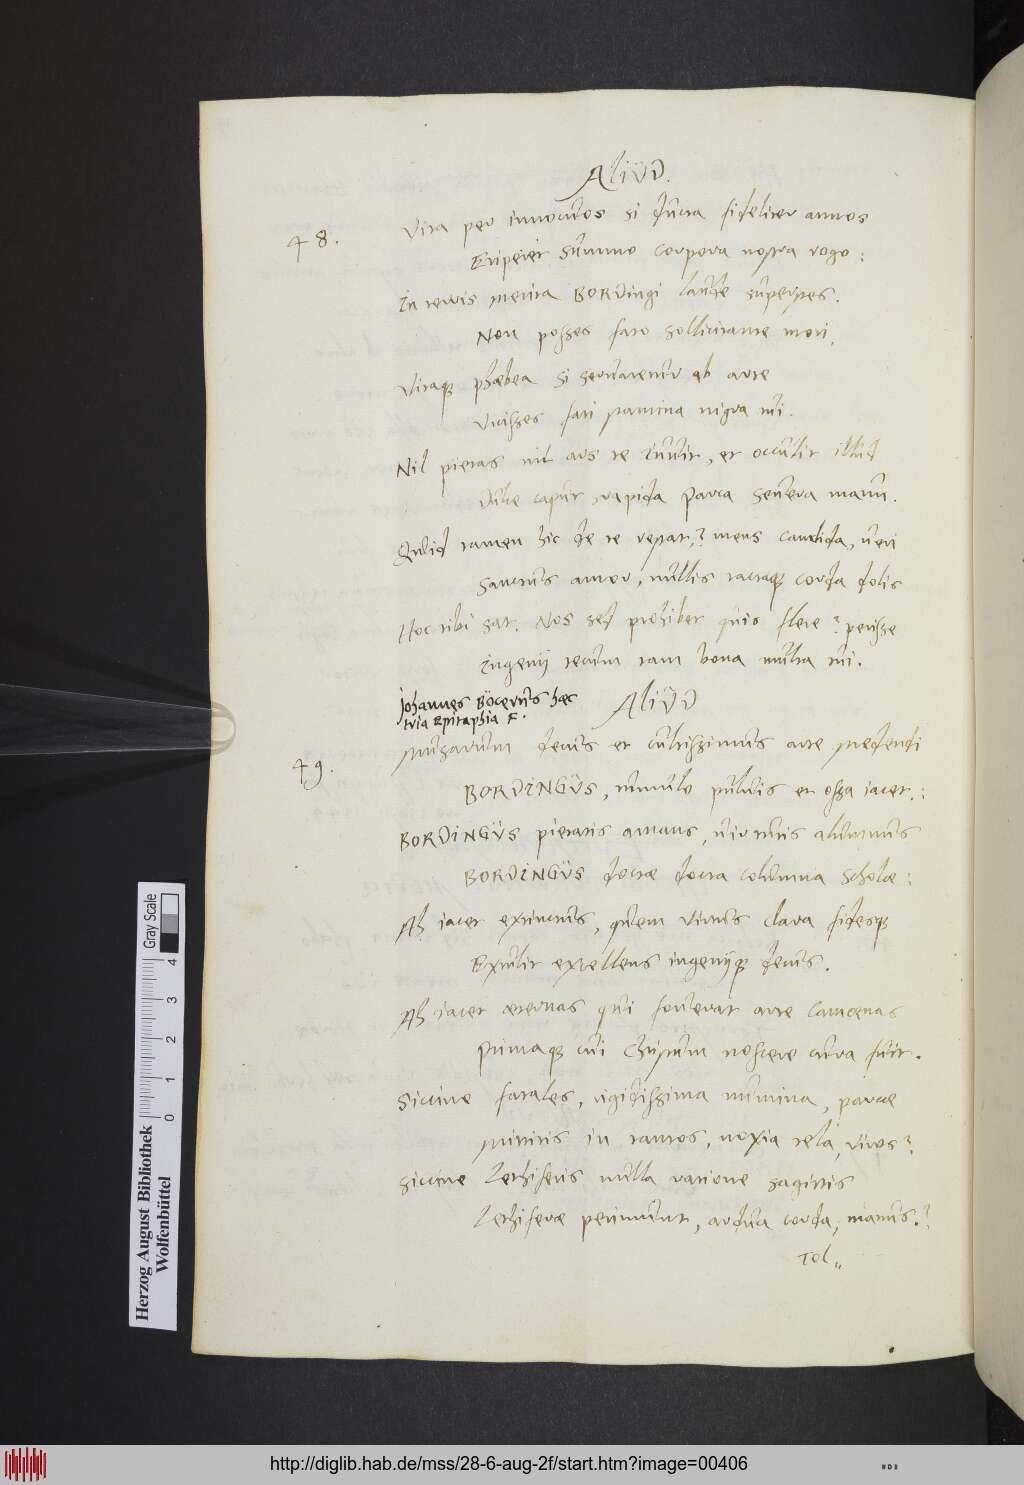 Aliud.
48. Vita per innocuos si ducta fideliter annos
Eriperet summo corpora nostra rogo:
In terris merita Bordingi laude superstes.
Non posses fato sollicitante mori,
Vitaque phæbea si servarentur ab arte
Vicisses fati stamina nigra tui.
Nil pietas nil ars te iuvit, et occulit illud
Dulce caput rapida Parca severa manu.
Quid tamen hic de te restat? mens candida, veri
Sanctus amor, nullis tactaque corda dolis
Hoc tibi sat. Nos sed prohibet quis flere? perisse
Ingenij tecum tam bona multa tui.
Johannes Böcerus hæc
tria Epitaphia F.
Aliud
49. Musarum decus et cultissimus arte medendi
BORDINGUS, tumulo pulvis et ossa iacet:
BORDINGUS pietatis amans, virtutis alumnus
BORDINGUS doctæ docta columna scholæ:
Ah iacet extinctus, quem virtus clara fidesque
Extulit excellens ingenijque decus.
Ah iacet æternas qui foverat arte Camœnas
Primaque cui Christum noscere cura fuit.
Siccine fatales, rigidissima numina, parcæ
Mittitis in tantos, noxia tela, viros?
Siccine Lethiferis nulla ratione sagittis
Lethiferæ perimunt, ardua corda, manus?
Tol„
Herzog August Bibliothek
Wolfenbüttel
Gray Scale
0 1 2 3 4
http://diglib.hab.de/mss/28-6-aug-2f/start.htm?image=00406